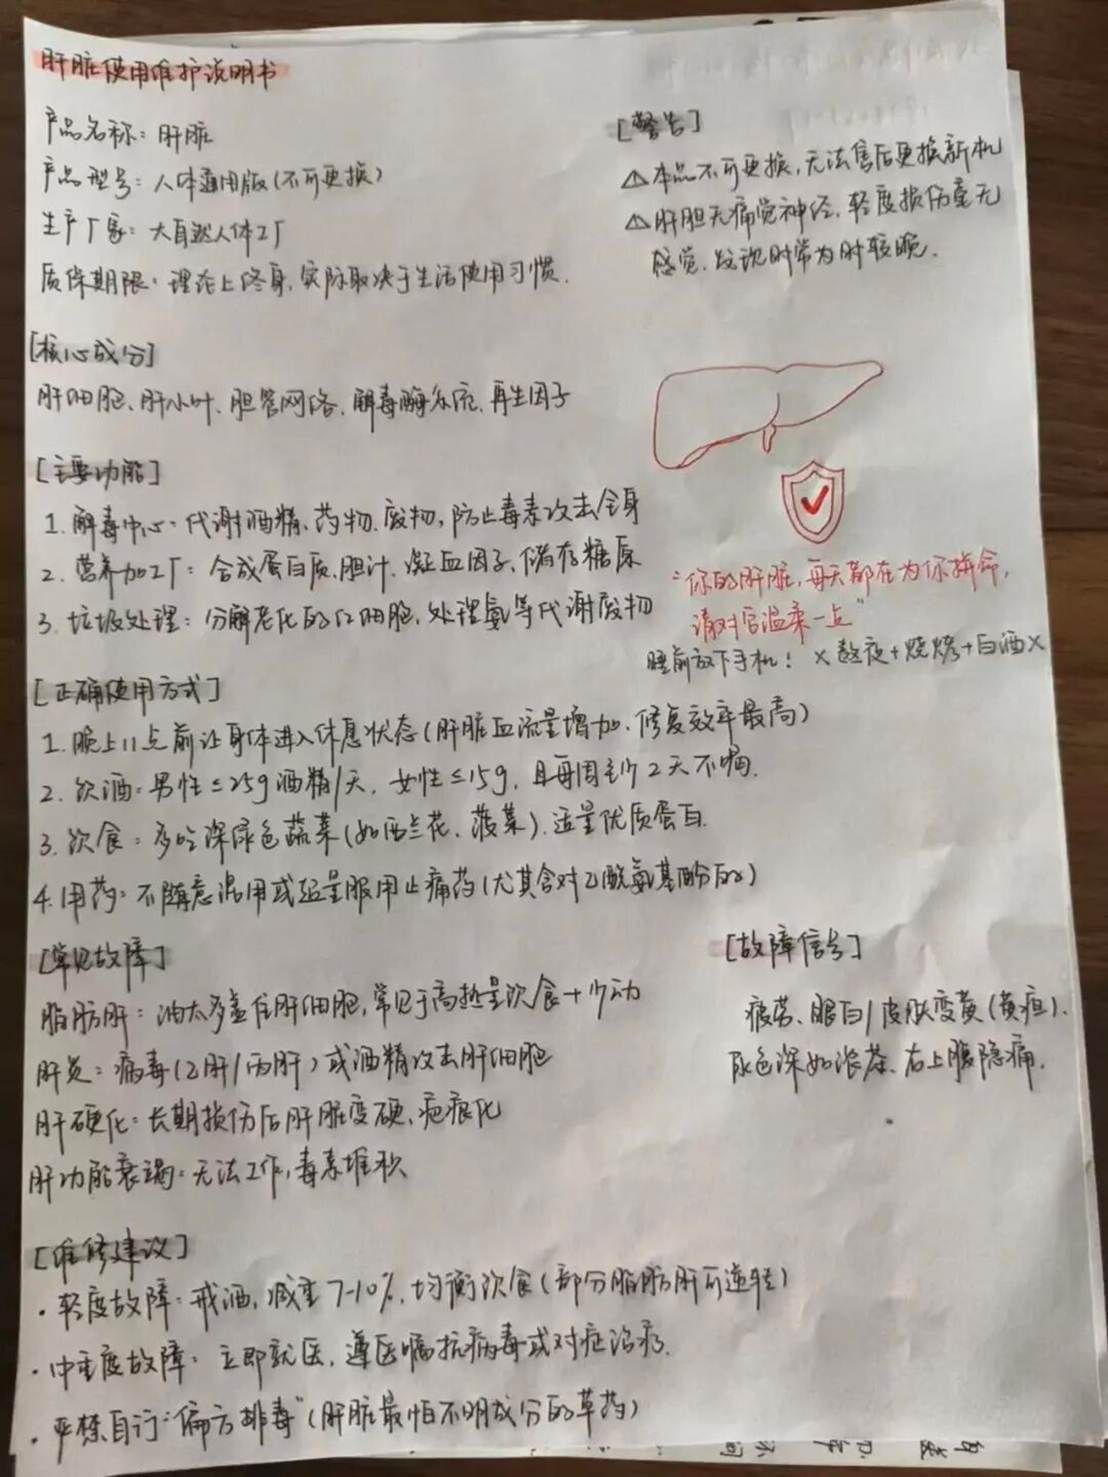 肝脏使用维护说明书
产品名称：肝脏
产品型号：人体通用版（不可更换）
生产厂家：大自然人体工厂
质保期限：理论上终身，实际取决于生活使用习惯.
[警告]
⚠本品不可更换，无法售后更换新机
⚠肝胆无痛觉神经，轻度损伤毫无
感觉，发现时常为时较晚.
[核心成分]
肝细胞、肝小叶、胆管网络、解毒酶系统、再生因子
[主要功能]
1. 解毒中心：代谢酒精、药物、废物，防止毒素攻击全身
2. 营养加工厂：合成蛋白质、胆汁、凝血因子、储存糖原
3. 垃圾处理：分解老化的红细胞，处理氨等代谢废物
“你的肝脏，每天都在为你拼命，
请对它温柔一点”
睡前放下手机！ ×熬夜+烧烤+白酒×
[正确使用方式]
1. 晚上11点前让身体进入休息状态（肝脏血流量增加、修复效率最高）
2. 饮酒：男性≤25g酒精/天，女性≤15g，且每周至少2天不喝.
3. 饮食：多吃深绿色蔬菜（如西兰花、菠菜）、适量优质蛋白.
4. 用药：不随意混用或过量服用止痛药（尤其含对乙酰氨基酚的）
[常见故障]
脂肪肝：油太多盖住肝细胞，常见于高热量饮食+少动
肝炎：病毒（乙肝/丙肝）或酒精攻击肝细胞
肝硬化：长期损伤后肝脏变硬、疤痕化
肝功能衰竭：无法工作，毒素堆积
[故障信号]
疲劳、眼白/皮肤变黄（黄疸）、
尿色深如浓茶、右上腹隐痛.
[维修建议]
·轻度故障：戒酒，减重7-10%，均衡饮食（部分脂肪肝可逆转）
·中重度故障：立即就医，遵医嘱抗病毒或对症治疗.
·严禁自行“偏方排毒”（肝脏最怕不明成分的草药）